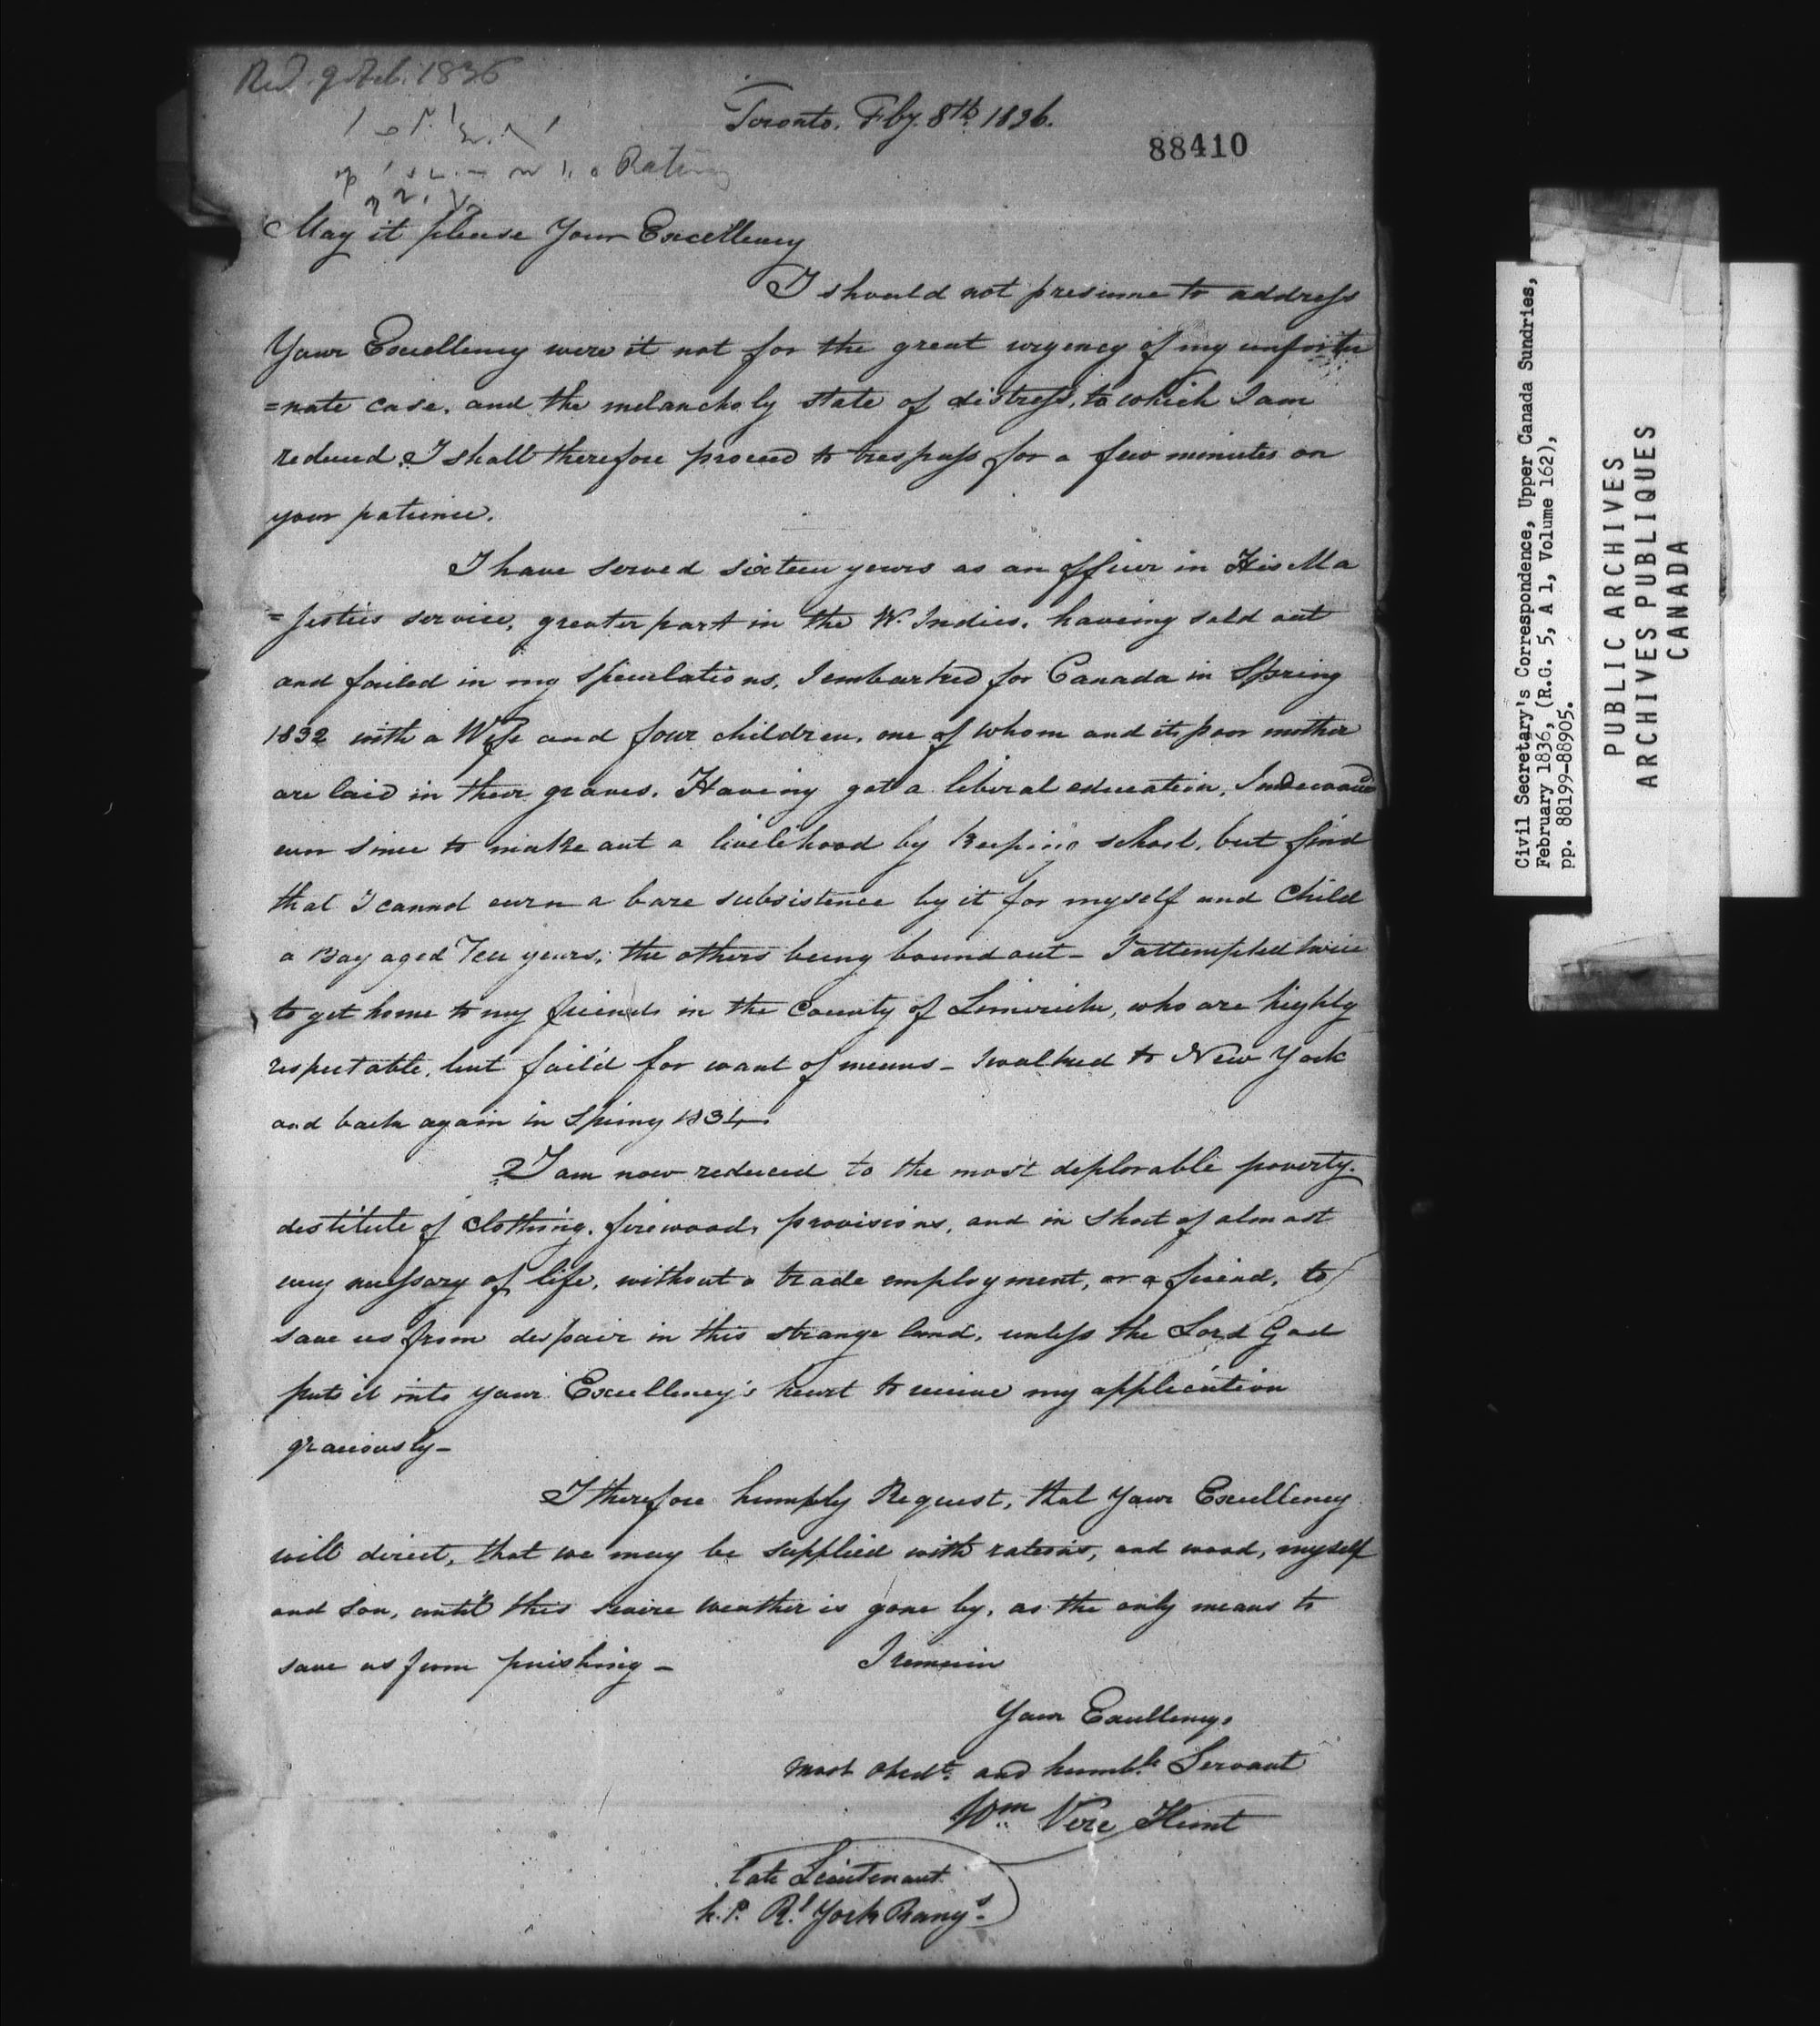 Recd. 9 Feb. 1836
Toronto, Fby. 8th 1836.
88410
Rations
May it please Your Excellency
I should not presume to address
Your Excellency were it not for the great urgency of my unfortu
=nate case, and the melancholy state of distress, to which I am
reduced. I shall therefore proceed to trespass for a few minutes on
your patience.
I have served sixteen years as an officer in His Ma
=jesties service, greater part in the W. Indies, haveing sold out
and failed in my speculations, I embarked for Canada in Spring
1832 with a Wife and four children, one of whom and its poor mother
are laid in their graves. Having got a liberal education, I
ever since to make out a livelihood by keeping school, but find
that I cannot earn a bare subsistence by it for myself and Child
a Boy aged Ten years, the others being bound out - I attempted twice
to get home to my friends in the County of Limerick, who are highly
respectable, but fail'd for want of means - I walked to New York
and back again in Spring 1834.
I am now reduced to the most deplorable poverty.
destitute of clothing, firewood, provisions, and in short of almost
every necessary of life, without a trade employment, or a friend, to
save us from despair in this strange land, unless the Lord God
puts it into your Excellency's heart to receive my application
graciously -
I therefore humbly Request, that Your Excellency
will direct, that we may be supplied with rations, and wood, myself
and Son, until this severe weather is gone by, as the only means to
save us from perishing - I remain
Your Excellencys
most obedt. and humble Servant
Wm. Vere Hunt
late Lieutenant
h.P. Rl. York Rangs.
Civil Secretary's Correspondence, Upper Canada Sundries,
February 1836, (R.G. 5, A 1, Volume 162),
pp. 88199-88905.
PUBLIC ARCHIVES
ARCHIVES PUBLIQUES
CANADA